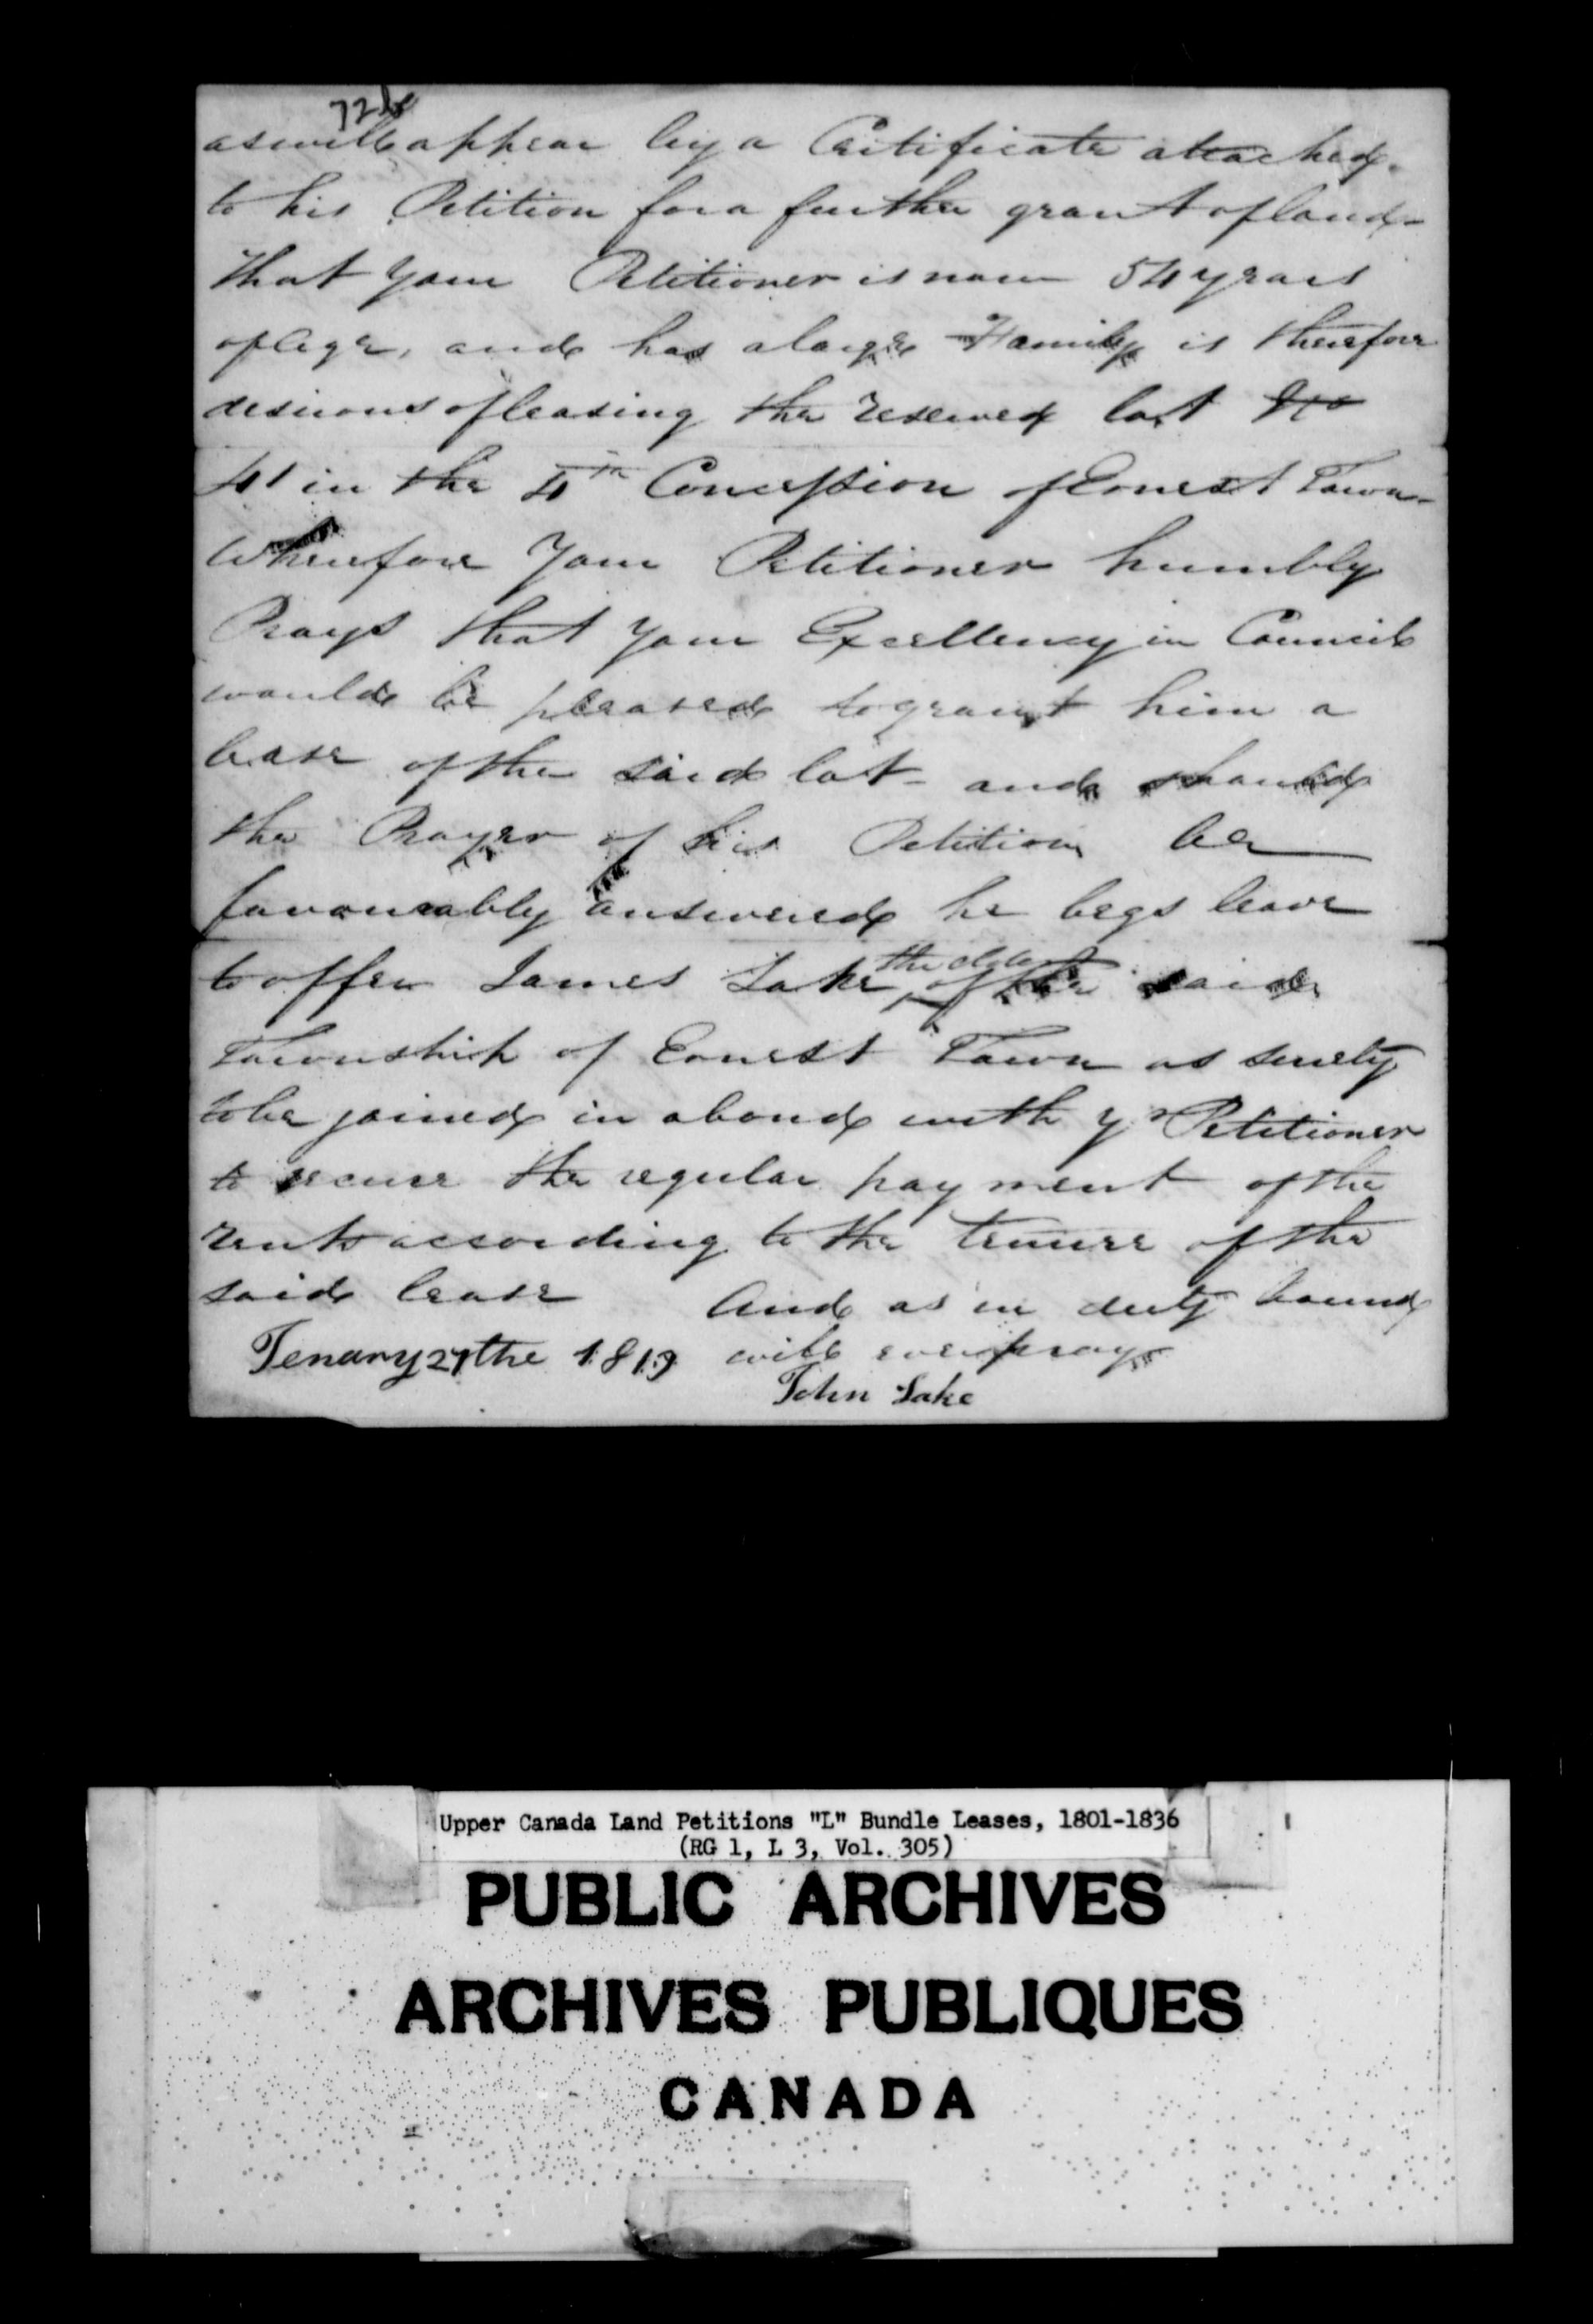 72b
as will appear by a Certificate attached
to his Petition for a further grant of land
that your Petitioner is now 54 years
of age, and has a large Family is therefore
desirous of leasing the reserved lot No
41 in the 4th Concession of Ernest Town
Wherefore Your Petitioner humbly
Prays that your Excellency in Council
would be pleased to grant him a
lease of the said lot - and should
the Prayer of his Petition be
favourably answered he begs leave
the eldest
to offer James Lake of the said
Township of Ernest Town as surety
to be joined in a bond with yr Petitioner
to secure the regular payment of the
rents according to the tenure of the
said lease And as in duty bound
Jenary 27the 1819 will ever pray
John Lake
Upper Canada Land Petitions "L" Bundle Leases, 1801-1836
(RG 1, L 3, Vol. 305)
PUBLIC ARCHIVES
ARCHIVES PUBLIQUES
CANADA